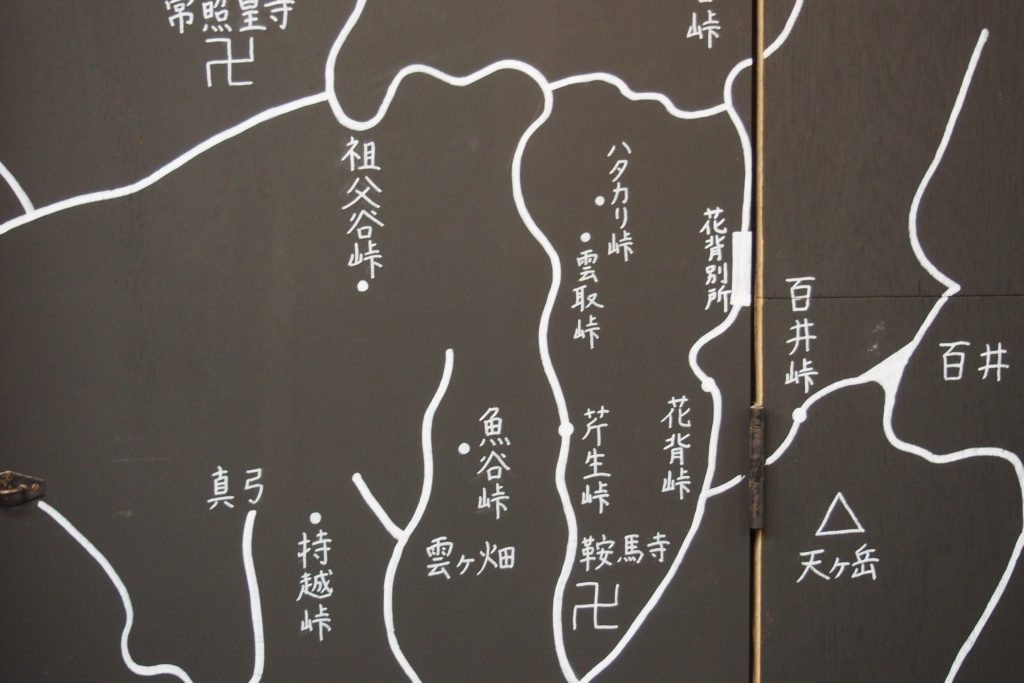 常照皇寺
峠
祖父谷峠
ハタカリ峠
雲取峠
花背別所
百井峠
百井
魚谷峠
芹生峠
花背峠
真弓
持越峠
雲ヶ畑
鞍馬寺
天ヶ岳